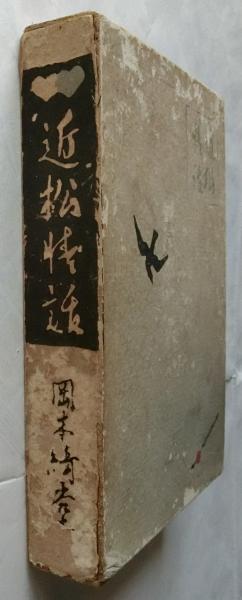 近松情話
岡本綺堂